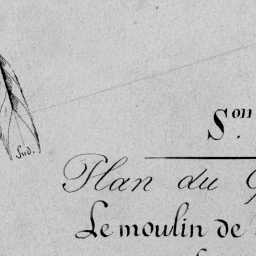 Son.
Sud.
Plan du
Le moulin de